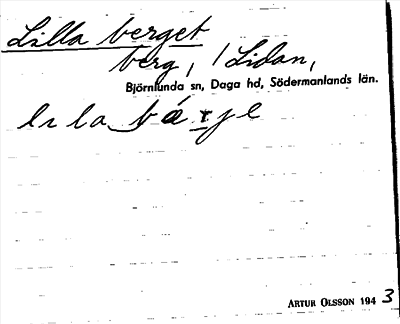 Lilla berget
berg, / Lidan,
Björnlunda sn, Daga hd, Södermanlands län.
lɩla bárje
ARTUR OLSSON 1943